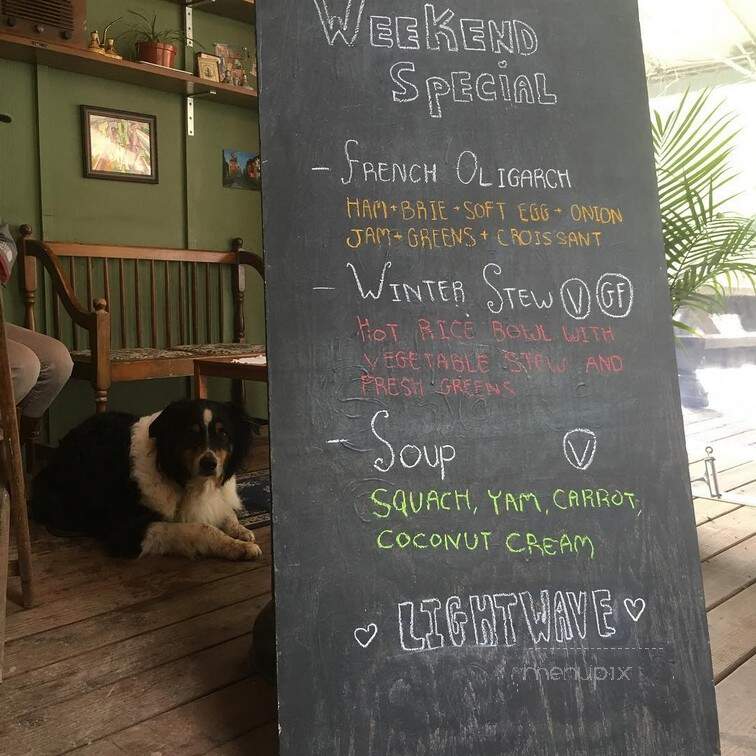 WEEKEND
SPECIAL
- FRENCH OLIGARCH
HAM + BRIE + SOFT EGG + ONION
JAM + GREENS + CROISSANT
- WINTER STEW V GF
HOT RICE BOWL WITH
VEGETABLE STEW AND
FRESH GREENS
- SOUP V
SQUACH, YAM, CARROT,
COCONUT CREAM
♡ LIGHTWAVE ♡
menupix